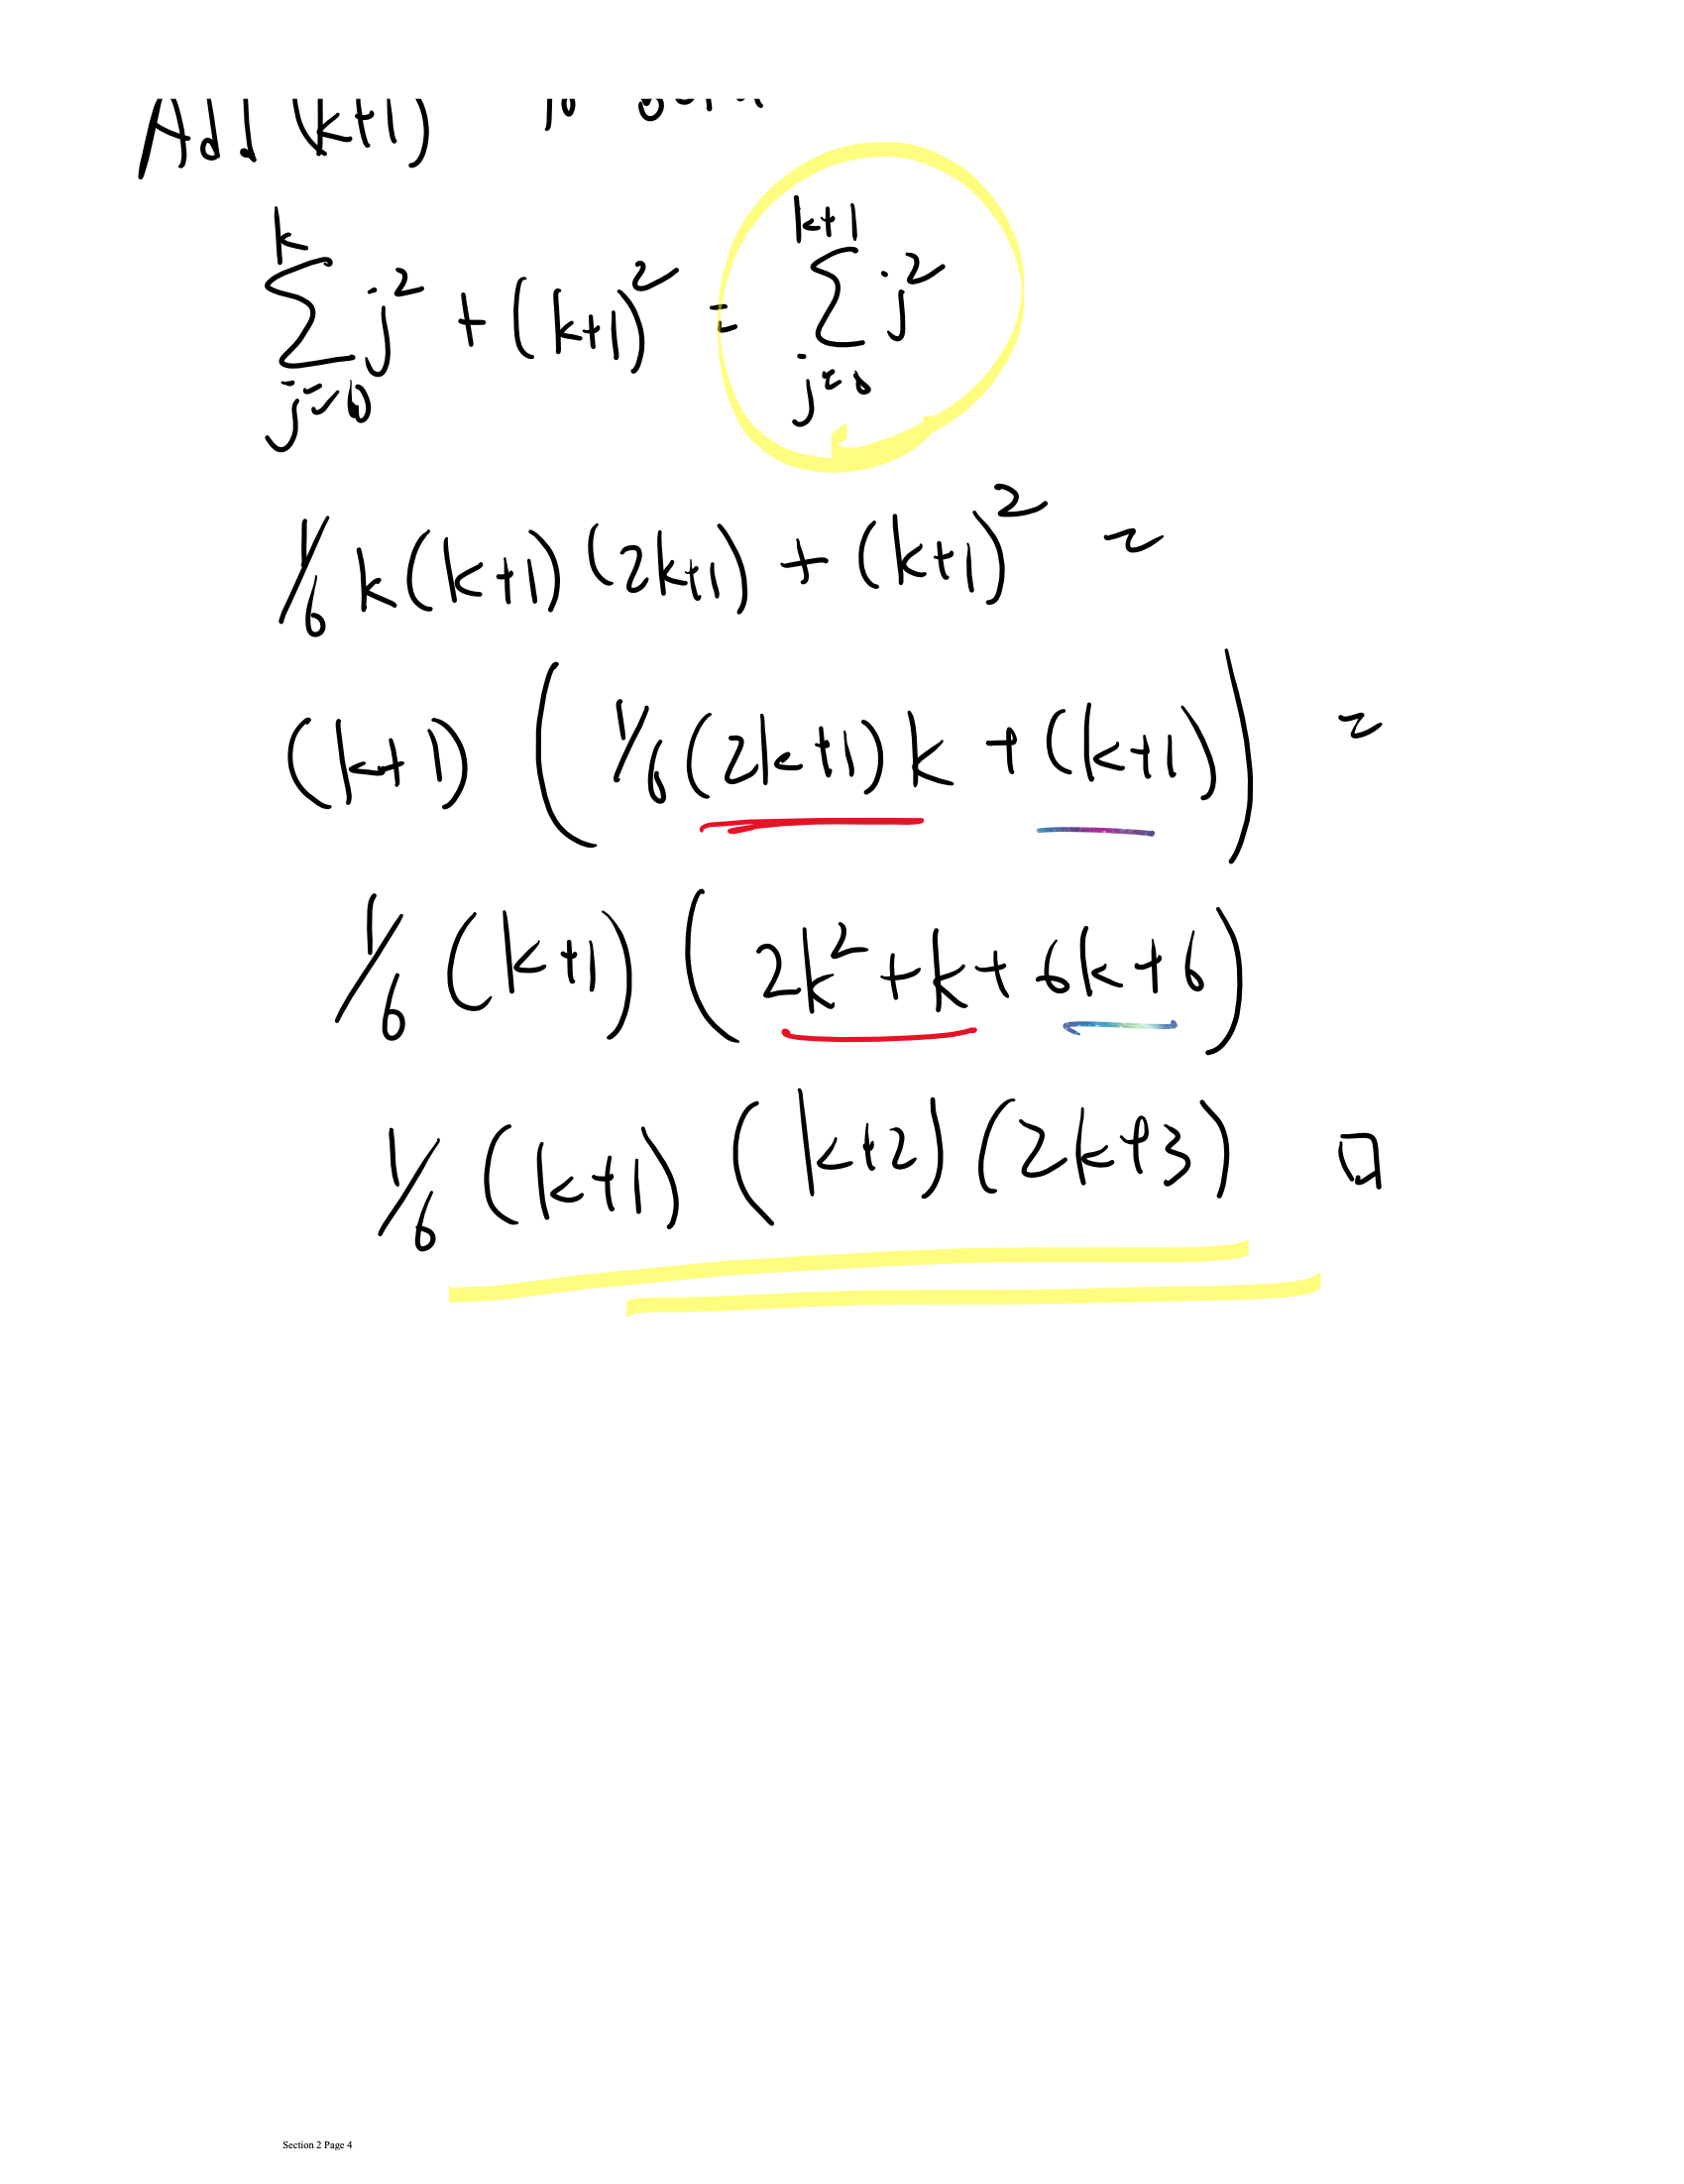 Add (k+1)
k k+1
∑ j² + (k+1)² = ∑ j²
j=0 j=0
1/6 k(k+1)(2k+1) + (k+1)² =
(k+1) (1/6(2k+1)k + (k+1)) =
1/6 (k+1) (2k²+k+6k+6)
1/6 (k+1) (k+2)(2k+3) □
Section 2 Page 4